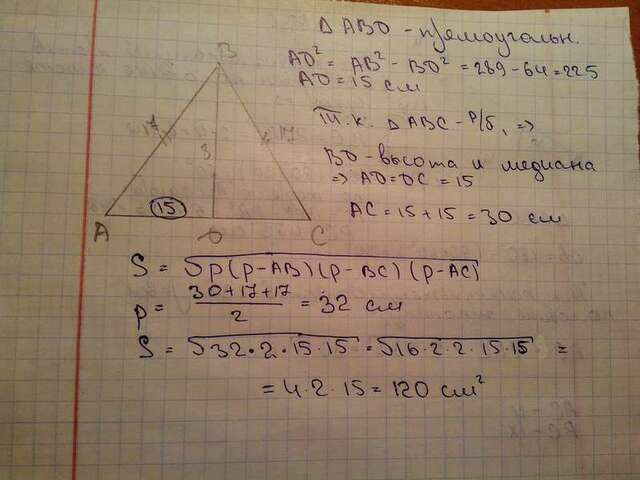 Δ ABO - прямоугольн.
AO² = AB² - BO² = 289 - 64 = 225
AO = 15 см
Т.к. Δ ABC - р/б, =>
BO - высота и медиана
=> AO = OC = 15
AC = 15 + 15 = 30 см
B
17
17
8
15
A
O
C
S = √p(p-AB)(p-BC)(p-AC)
p = (30+17+17)/2 = 32 см
S = √32·2·15·15 = √16·2·2·15·15 =
= 4·2·15 = 120 см²